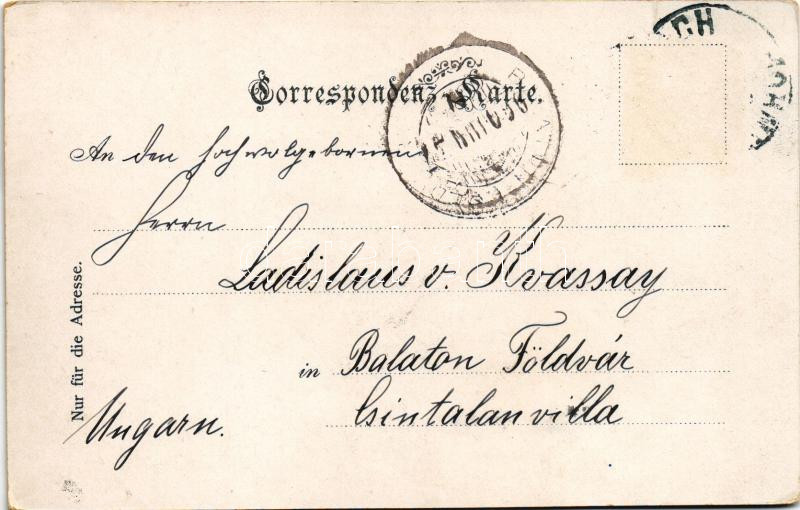 Correspondenz-Karte.
An den hochwolgebornen
Herrn
Ladislaus v. Kvassay
in Balaton Földvár
Csintalan villa
Ungarn.
Nur für die Adresse.